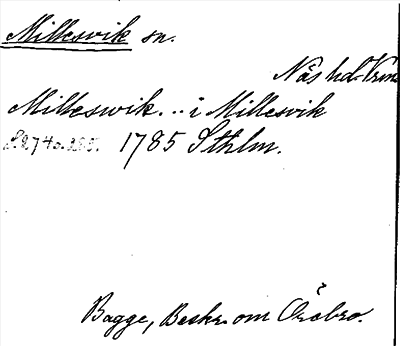 Millesvik sn.
Näs hd. Vrml
Milleswik. .. i Millesvik
s. 274 o. 285. 1785 Sthlm.
Bagge, Beskr. om Örebro.